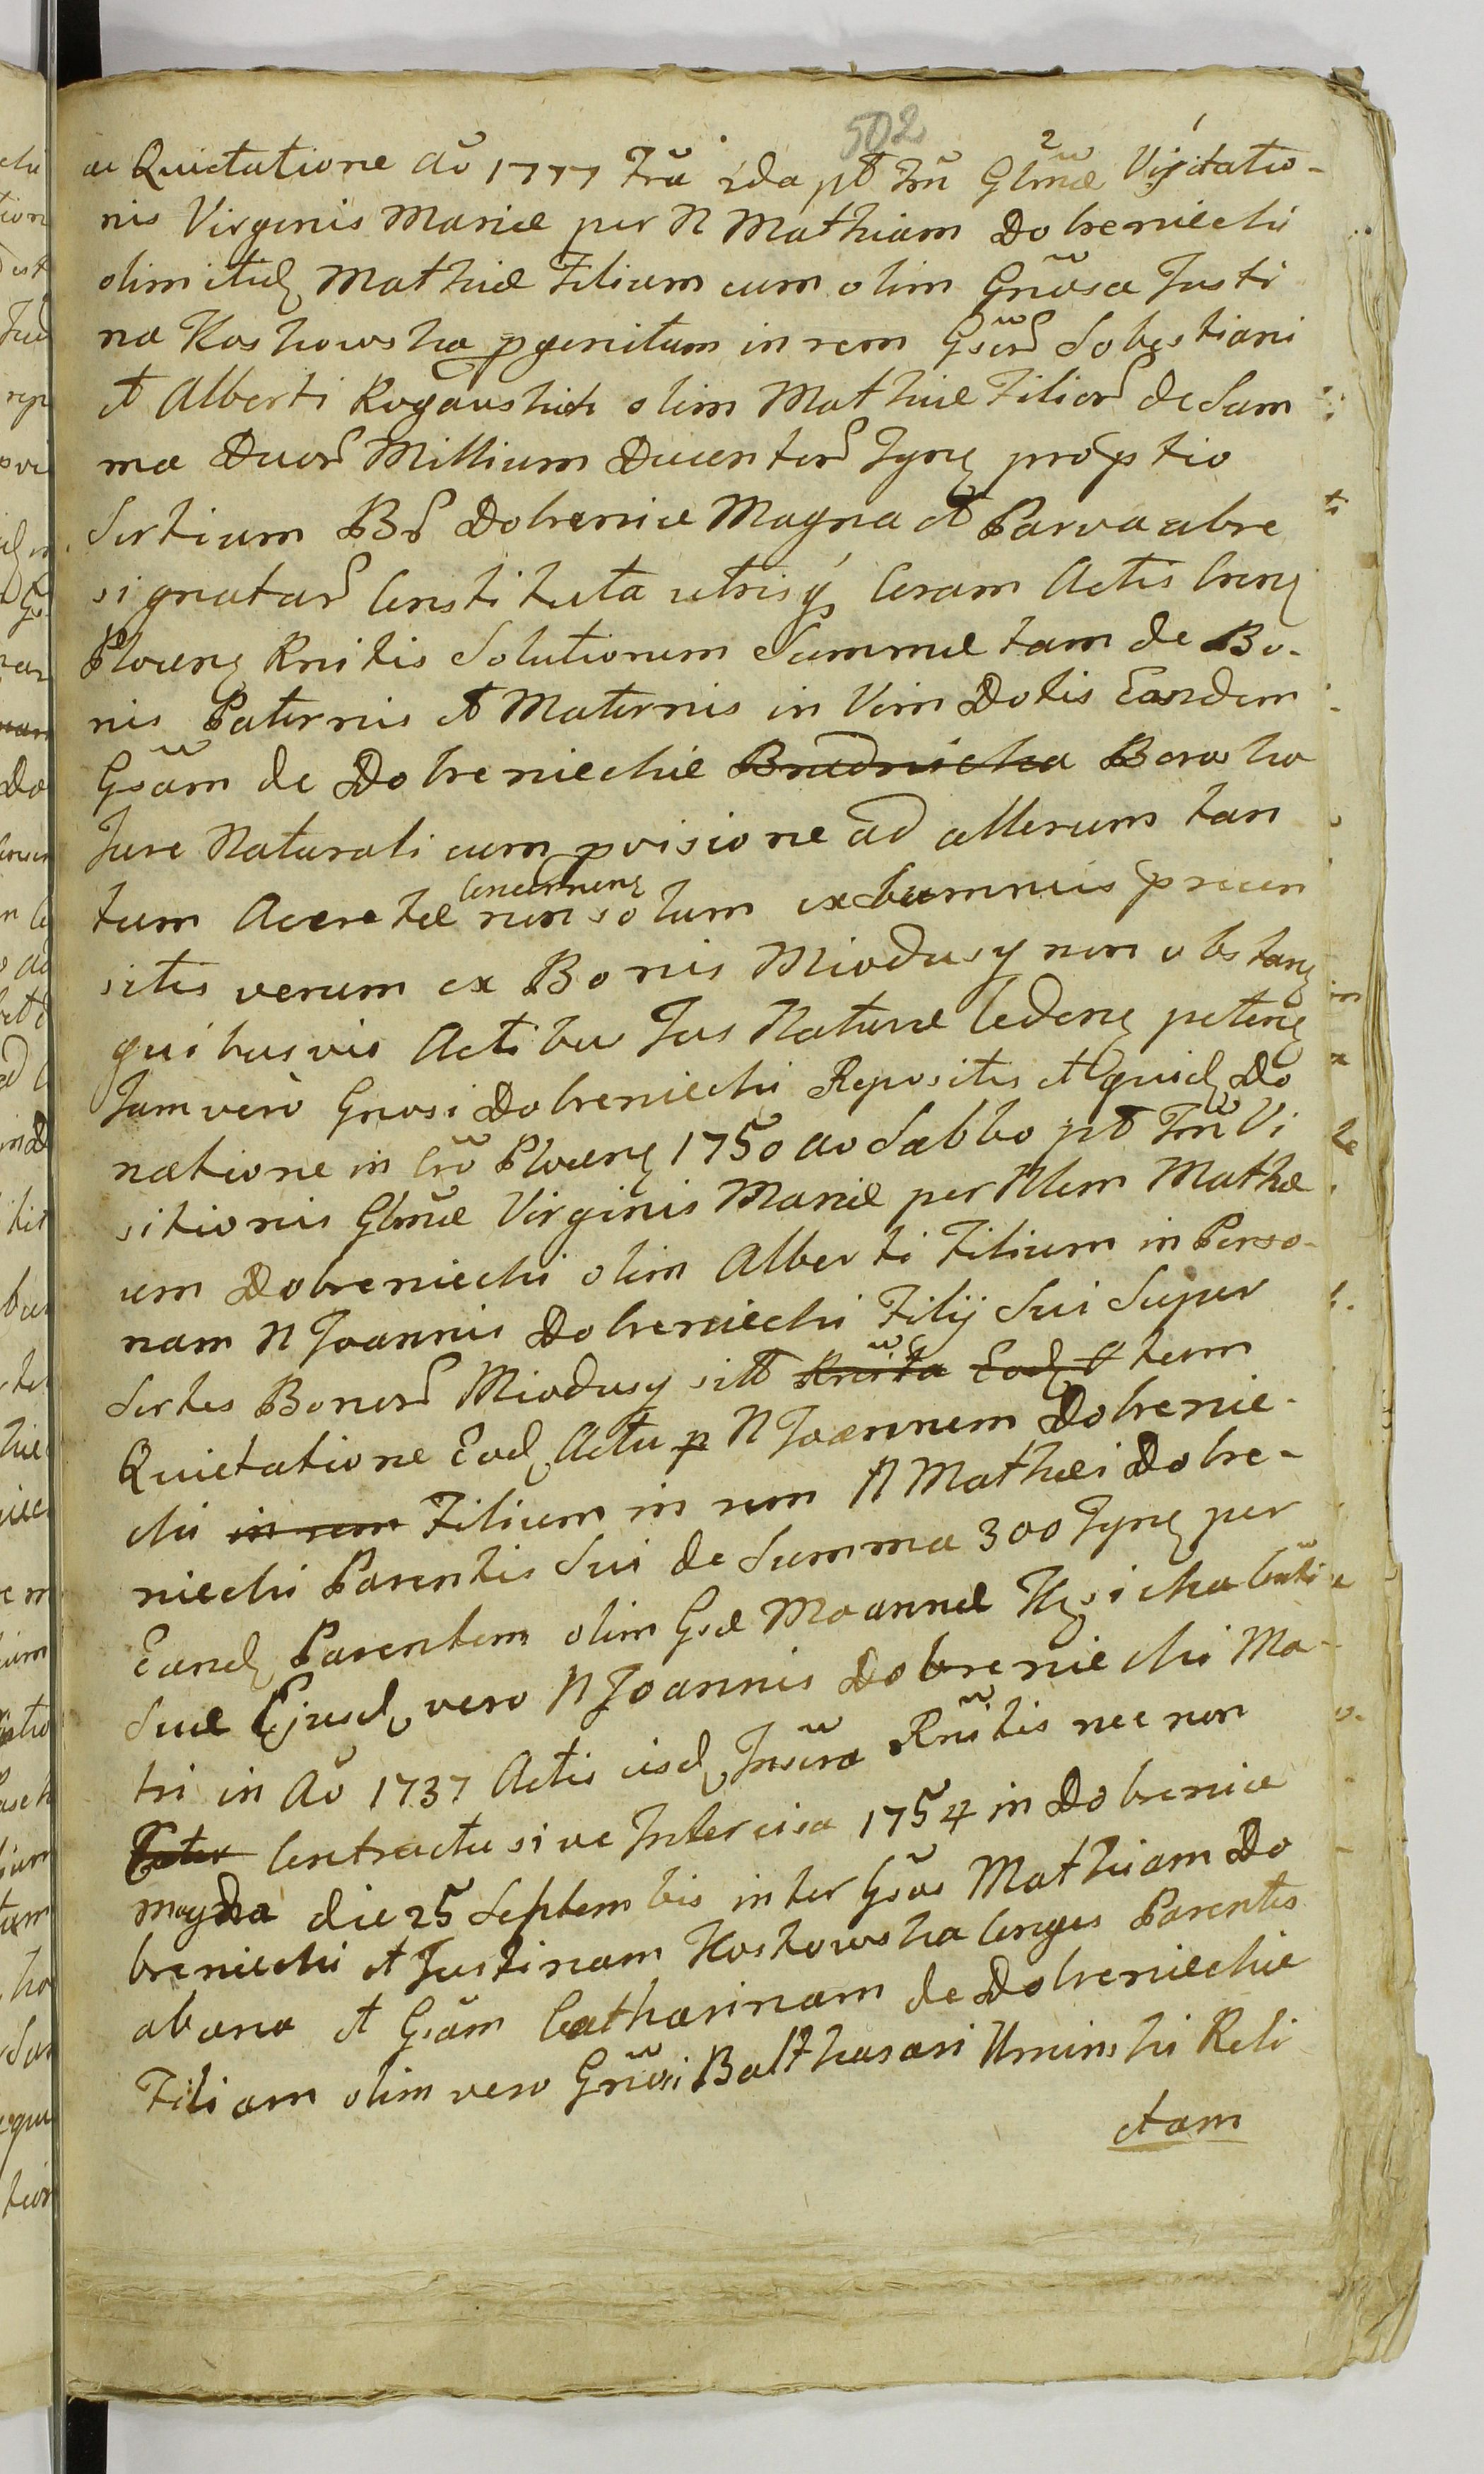 502
ac Quietatione Aō 1777 Frā 2da pt Frū Glmæ Visitatio-
nis Virginis Mariæ per N Mathiam Dobreniecki
olim itid. Mathiæ Filium cum olim Gnōsa Justi
na Koskowska pgenitum in rem Gsor̄ Sobestiani
et Alberti Rogawskich olim Mathiæ Filior̄ de Sum
ma Duor̄ Millium Ducentor̄ Tyng
Sortium Br̄ Dobrenice Magna et Parva abre
signatar̄ Constituta utrisq3 Coram Actis
Plocens Rnitis Solutionem Summæ tam de Bo-
nis Paternis et Maternis in Vim Dotis Eandem
Gsām de Dobrenieckie Borwska
Jure Naturali cum pvisione ad alterum tan
tum Aceretæ Concernens non solum ex præcen
sitis verum ex Bonis Miodusy non obstans
quibusvis Actibus Jus Naturæ ledens petens
Jam verò Gnosi Dobreniecki Repositis et quid. Do
natione in Crō Plocens 1750 ao Sabbo pt Frū Vi
sitionis Glmæ Virginis Mariæ per Nlem Mathæ
um Dobreniecki olim Alberti Filium in Perso-
nam N Joannis Dobreniecki Filij Sui Super
Sortes Bonor̄ Miodusy sitt Rnita Eod tum
Quietatione Eod. Actu p N Joannem Dobrenie-
cki in rem Filium in rem N Mathæi Dobre-
niecki Parentis Sui de Summa 300 Tyng per
Eand. Parentem olim Gsæ Moannæ
Suæ Ejusd. vero N Joannis Dobreniecki Ma-
tri in Aō 1737 Actis iisd. Rnitis nec non
Contractu sive Intercisa 1754 in Dobrenice
magna die 25 Septembis inter Gsōs Mathiam Do
breniecki et Justinam Koskowska Conges Parentes
ab una et Gsām Catharinam de Dobrenieckie
Filiam olim vero Gnōsi Balthasari Uminski Reli
ctam